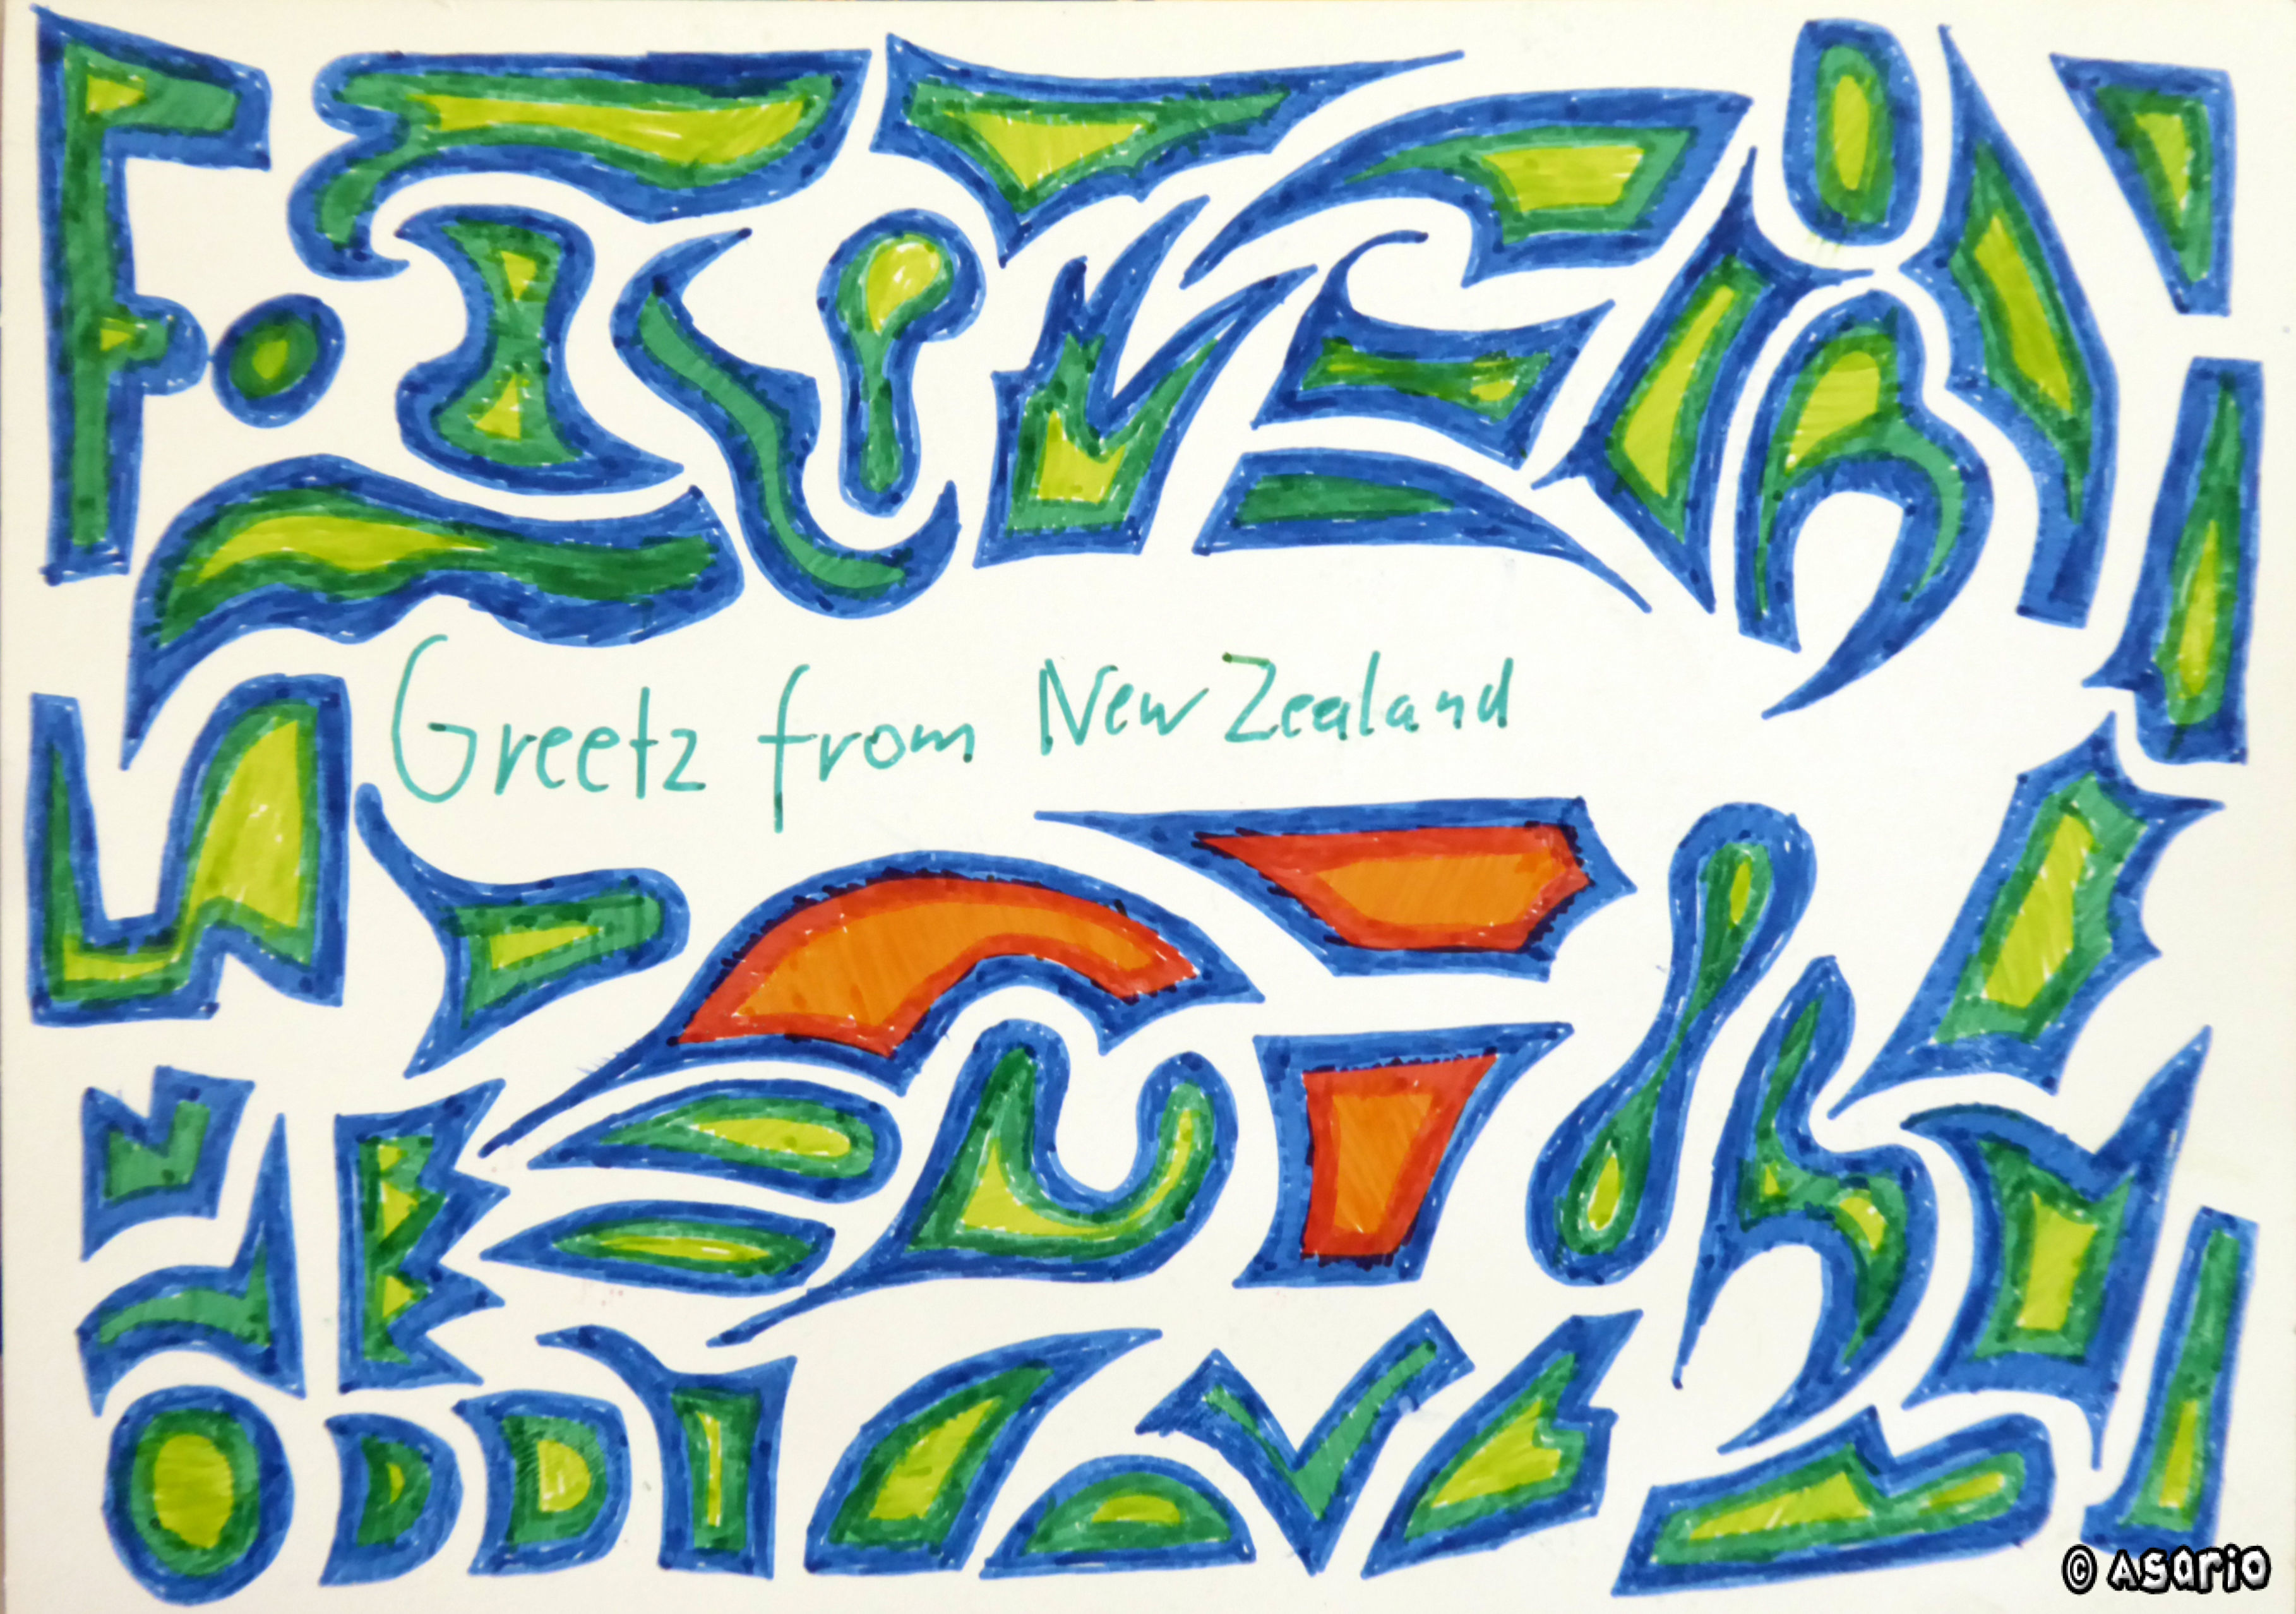 Greetz from New Zealand
© Asario